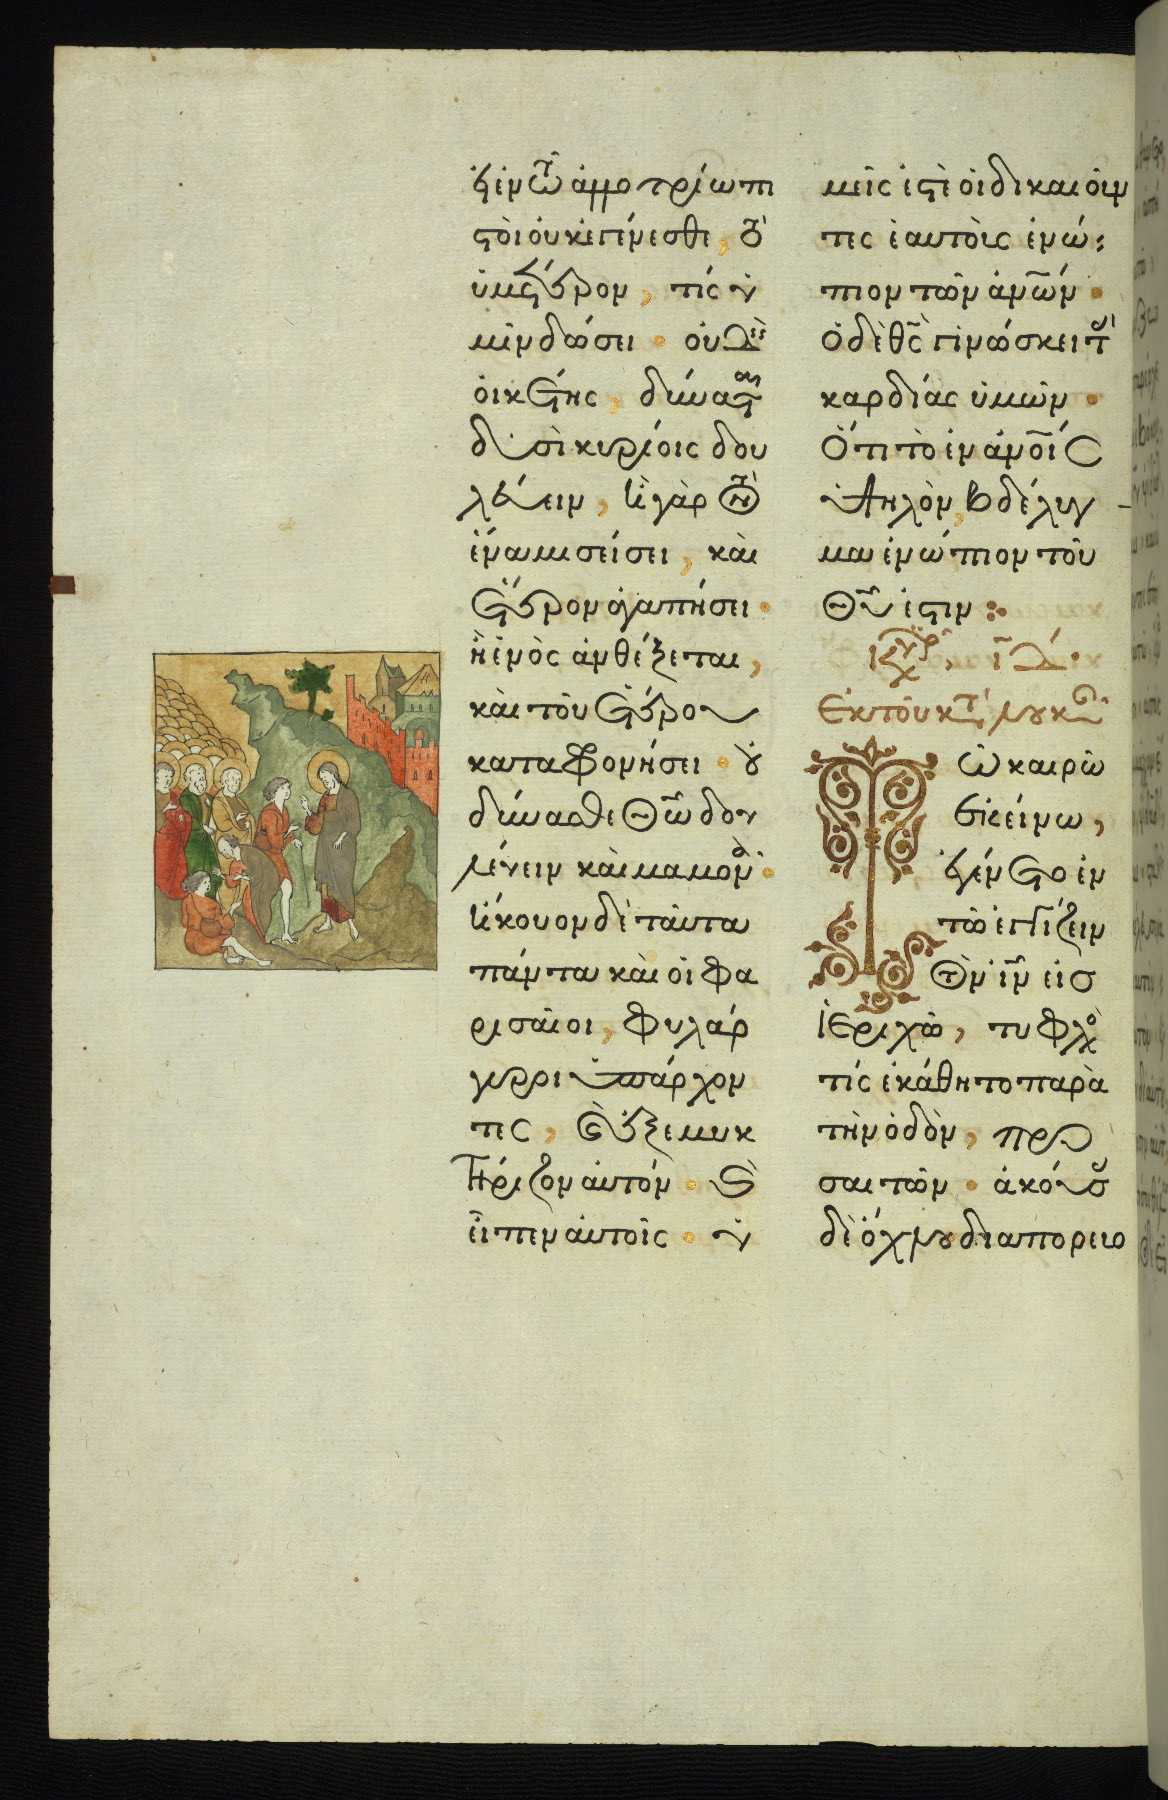 ἡ ἐν τῶ ἀλλοτρίω πι
στοὶ οὐκ ἐγένεσθε, τὸ
ὑμέτερον, τίς ὑ
μῖν δώσει · οὐδεὶς
οἰκέτης, δύναται
δυσὶ κυρίοις δου
λεύειν, ἢ γὰρ τὸν
ἕνα μισείσει, καὶ
τὸν ἕτερον ἀγαπήσει ·
ἢ ἑνὸς ἀνθέξεται,
καὶ τοῦ ἑτέρου
καταφρονήσει · οὐ
δύνασθε Θῶ δου
λεύειν καὶ μαμονᾶ ·
ἤκουον δὲ ταῦτα
πάντα καὶ οἱ φα
ρισαῖοι, φυλάρ
γυροι ὑπάρχον
τες, καὶ ἐξεμυκ
τήριζον αὐτόν · καὶ
εἶπεν αὐτοῖς · ὑ
μεῖς ἐστὲ οἱ δικαιοῦν
τες ἑαυτοὺς ἐνώ
πιον τῶν ἀνῶν ·
ὁ δὲ θς γινώσκει τὰς
καρδίας ὑμῶν ·
Ὅτι τὸ ἐν ἀνοις
ὑψηλὸν, βδέλυγ
μα ἐνώπιον τοῦ
Θυ ἐστιν :
κυρ, ιδ ·
Ἐκ τοῦ κατὰ λουκᾶν
Τῶ καιρῶ
ἐκείνω,
ἐγένετο ἐν
τῶ ἐγγίζειν
τὸν ιν εἰς
ἱεριχὼ, τυφλός
τίς ἐκάθητο παρὰ
τὴν ὁδὸν, προ
σαιτῶν · ἀκούσας
δὲ ὄχλου διαπορευο